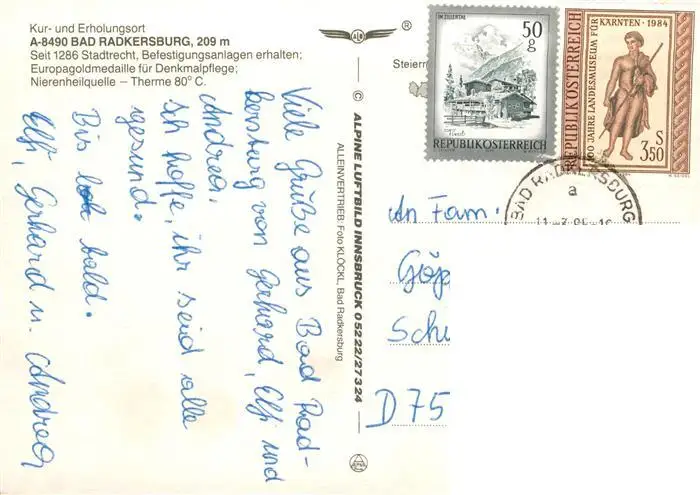 Kur- und Erholungsort
A-8490 BAD RADKERSBURG, 209 m
Seit 1286 Stadtrecht, Befestigungsanlagen erhalten;
Europagoldmedaille für Denkmalpflege;
Nierenheilquelle – Therme 80° C.
Viele Grüße aus Bad Rad-
kersburg von Gerhard, Elfi und
Andrea.
Ich hoffe, ihr seid alle
gesund.
Bis bald.
Elfi, Gerhard u. Andrea
© ALPINE LUFTBILD INNSBRUCK 05222/27324
ALLEINVERTRIEB: Foto KLÖCKL, Bad Radkersburg
®
Steierm
IM ZILLERTAL
50
g
REPUBLIK ÖSTERREICH
REPUBLIK ÖSTERREICH
100 JAHRE LANDESMUSEUM FÜR
KÄRNTEN · 1984
S
3,50
BAD RADKERSBURG
a
An Fam.
Göp
Sch
D 75